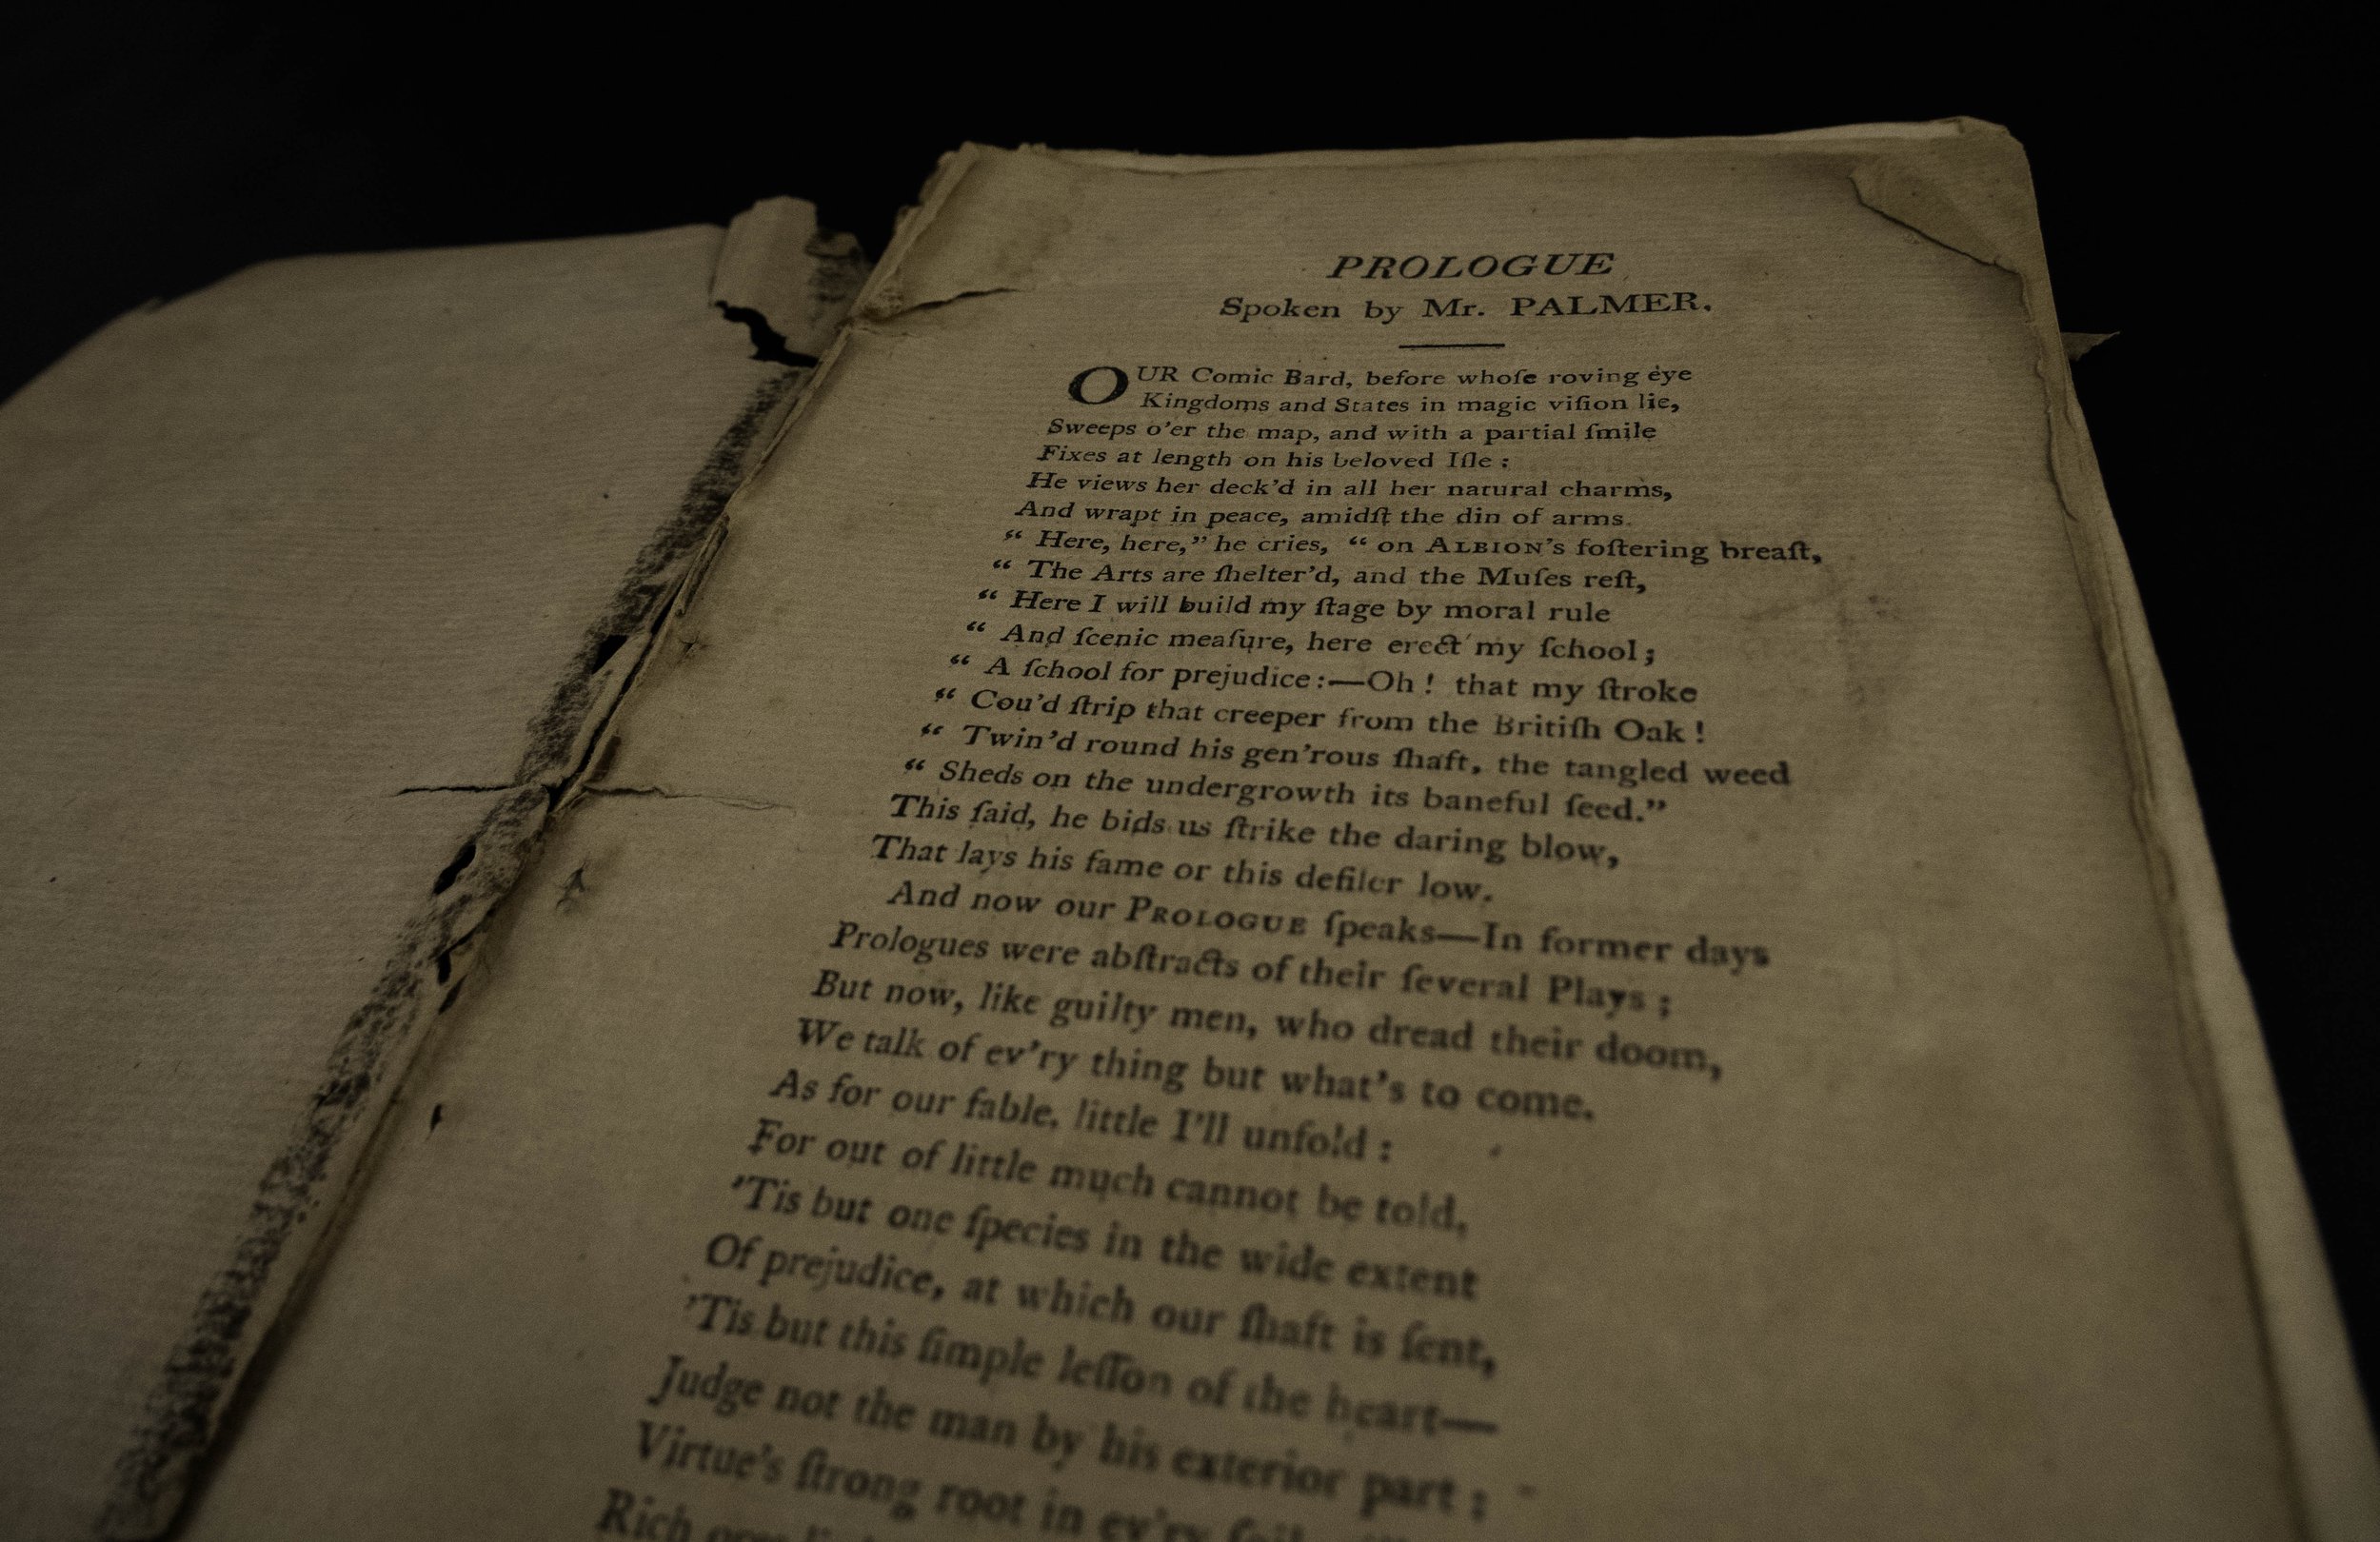 PROLOGUE
Spoken by Mr. PALMER.
OUR Comic Bard, before whoſe roving eye
Kingdoms and States in magic viſion lie,
Sweeps o'er the map, and with a partial ſmile
Fixes at length on his beloved Iſle :
He views her deck'd in all her natural charms,
And wrapt in peace, amidſt the din of arms.
“ Here, here,” he cries, “ on ALBION's foſtering breaſt,
“ The Arts are ſhelter'd, and the Muſes reſt,
“ Here I will build my ſtage by moral rule
“ And ſcenic meaſure, here erect my ſchool ;
“ A ſchool for prejudice :—Oh ! that my ſtroke
“ Cou'd ſtrip that creeper from the Britiſh Oak !
“ Twin'd round his gen'rous ſhaft, the tangled weed
“ Sheds on the undergrowth its baneful ſeed.”
This ſaid, he bids us ſtrike the daring blow,
That lays his fame or this defiler low.
And now our PROLOGUE ſpeaks—In former days
Prologues were abſtracts of their ſeveral Plays ;
But now, like guilty men, who dread their doom,
We talk of ev'ry thing but what's to come.
As for our fable, little I'll unfold :
For out of little much cannot be told,
'Tis but one ſpecies in the wide extent
Of prejudice, at which our ſhaft is ſent,
'Tis but this ſimple leſſon of the heart—
Judge not the man by his exterior part ;
Virtue's ſtrong root in ev'ry ſoil
Rich